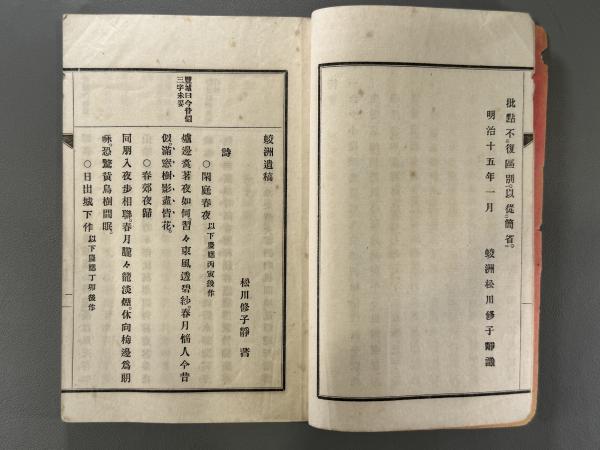 批點不復區別。以從簡省。
明治十五年一月　蛟洲松川修子靜識
蛟洲遺稿
松川修子靜著
詩
○閑庭春夜 以下慶應丙寅後作
爐邊煑茗夜如何。習々東風透碧紗。春月惱人今昔
似。滿窓樹影盡惜花。
○春郊夜歸
同朋入夜步相聯。春月朧々籠淡烟。休向梅邊爲朗
咏。恐驚黃鳥樹間眠。
○日出城下作 以下慶應丁卯後作
曰今昔似
三字未妥